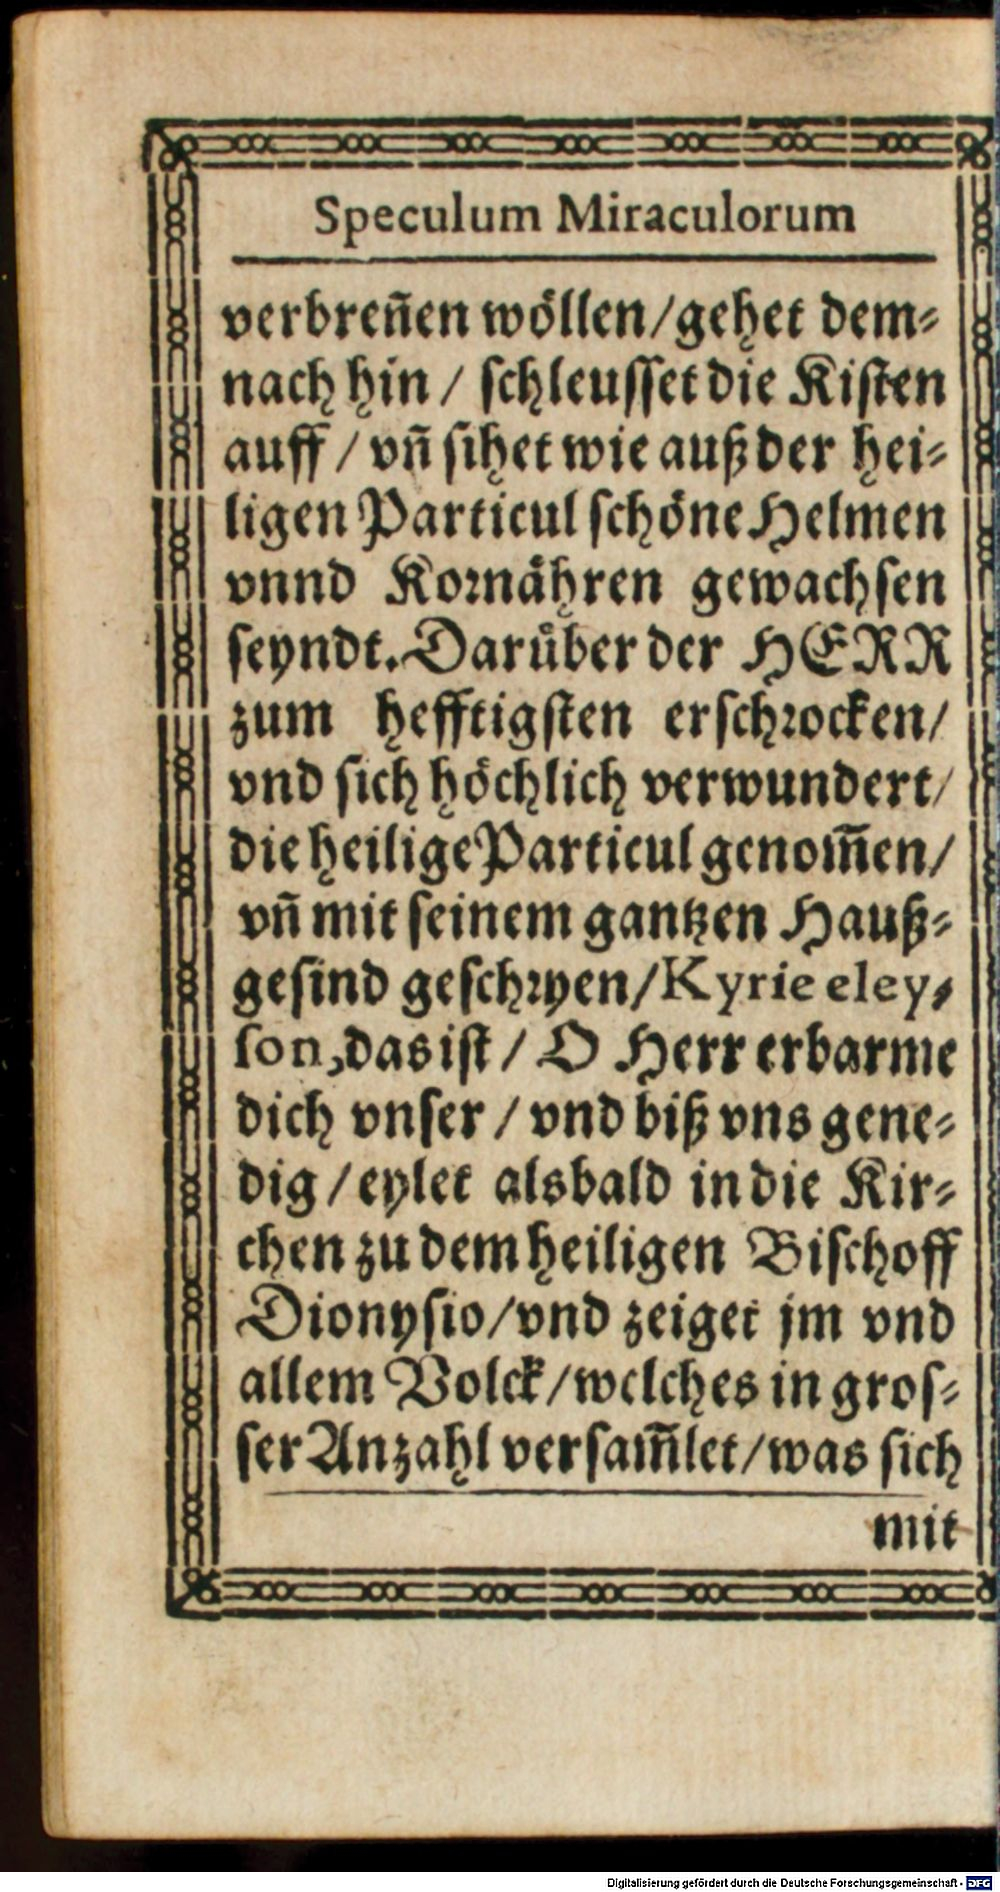 Speculum Miraculorum
verbreñen wöllen/gehet dem-
nach hin / schleusset die Kisten
auff / vñ sihet wie auß der hei-
ligen Particul schöne Helmen
vnnd Kornähren gewachsen
seyndt. Darüber der HERR
zum hefftigsten erschrocken/
vnd sich höchlich verwundert/
die heilige Particul genom̃en/
vñ mit seinem gantzen Hauß-
gesind geschryen/Kyrie eley-
son, das ist / O Herr erbarme
dich vnser / vnd biß vns gene-
dig / eylet alsbald in die Kir-
chen zu dem heiligen Bischoff
Dionysio/vnd zeiget jm vnd
allem Volck/welches in gros-
ser Anzahl versam̃let/was sich
mit
Digitalisierung gefördert durch die Deutsche Forschungsgemeinschaft - DFG